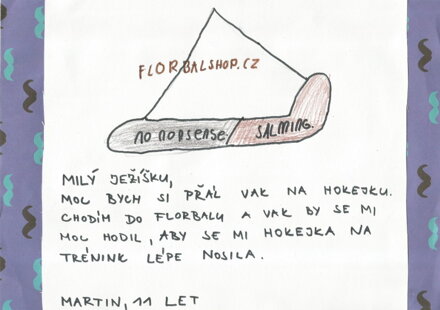 FLORBALSHOP.CZ
NO NONSENSE / SALMING.
MILÝ JEŽÍŠKU,
MOC BYCH SI PŘÁL VAK NA HOKEJKU.
CHODÍM DO FLORBALU A VAK BY SE MI
MOC HODIL, ABY SE MI HOKEJKA NA
TRÉNINK LÉPE NOSILA.
MARTIN, 11 LET